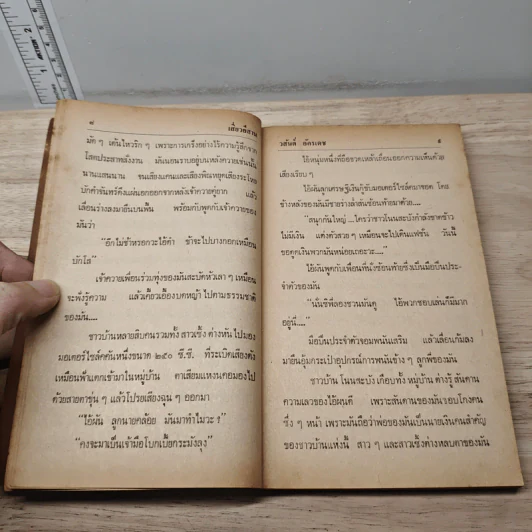 ๘ เสี่ยวอีสาน
มัด ๆ เต้นไหวรัก ๆ เพราะการเกร็งอย่างไร้ความรู้สึกจาก
โสตประสาทสั่งงาน มันนอนราบอยู่บนหลังควายเช่นนั้น
นานแสนนาน จนเสียงแคนและเสียงพิณหยุดเสียงระโหย
บักคำจันทร์คึงแผ่นอกออกจากหลังเจ้าควายคู่ยาก แล้ว
เลื่อนร่างลงมายืนบนพื้น พร้อมกับพูดกับเจ้าควายของ
มันว่า
“อีกไม่ช้าหรอกวะไอ้ดำ ข้าจะไปบางกอกเหมือน
บักไส”
เจ้าควายเพื่อนร่วมทุ่งของมันสะบัดหัวเลา ๆ เหมือน
จะพึ่งรู้ความ แล้วเคี้ยวเอื้องบดหญ้า ไปตามธรรมชาติ
ของมัน....
ชาวบ้านหลายสิบคนรวมทั้ง สาวเซิ้ง ต่างหันไปมอง
มอเตอร์ไซค์คันหนึ่งขนาด ๒๕๐ ซี.ซี. ที่ระเบิดเสียงดัง
เหมือนฟ้าแตกเข้ามาในหมู่บ้าน ตาเสียมแหงนคอมองไป
ด้วยสายตาขุ่น ๆ แล้วโปรยเสียงฉุน ๆ ออกมา
“ไอ้ผัน ลูกนายคล้อย มันมาทำไมวะ ?”
“คงจะมาเป็นเจ้ามือโบกเบี้ยกระมังลุง”
วสันต์ ภัครเดช ๙
ไอ้หนุ่มหนึ่งที่ถือขวดเหล้าเถื่อนออกความเห็นด้วย
เสียงเรียบ ๆ
ไอ้ผันลูกเศรษฐีเงินกู้ขับมอเตอร์ไซค์ลมาจอด โดย
ข้างหลังของมันมีชายร่างล่ำสันซ้อนท้ายมาด้วย....
“สนุกกันใหญ่ ....ใครว่าชาวโนนสะบังกำลังขาดข้าว
ไม่มีเงิน แต่งตัวสวย ๆ เหมือนจะไปเดินแฟชั่น วันนี้
ขอดูดเงินพวกมันหน่อยเถอะวะ....”
ไอ้ผันพูดกับเพื่อนที่นั่งซ้อนท้ายซึ่งเป็นมือปืนประ-
จำตัวของมัน
“นั่นซิพี่ลองชวนมันดู ไอ้พวกชอบเล่นก็มีมาก
อยู่นี่....”
มือปืนประจำตัวจอมพนันเสริม แล้วเลื่อนก้นลง
มายืนอุ้มกระเป๋าอุปกรณ์การพนันข้าง ๆ ลูกพี่ของมัน
ชาวบ้าน โนนสะบัง เกือบทั้ง หมู่บ้าน ต่างรู้ สันดาน
ความเลวของไอ้ผันดี เพราะสันดานของมันชอบโกงคน
ซึ่ง ๆ หน้า เพราะมันถือว่าพ่อของมันเป็นนายเงินคนสำคัญ
ของชาวบ้านแห่งนี้ สาว ๆ และสาวเซิ้งต่างหลบตาของมัน